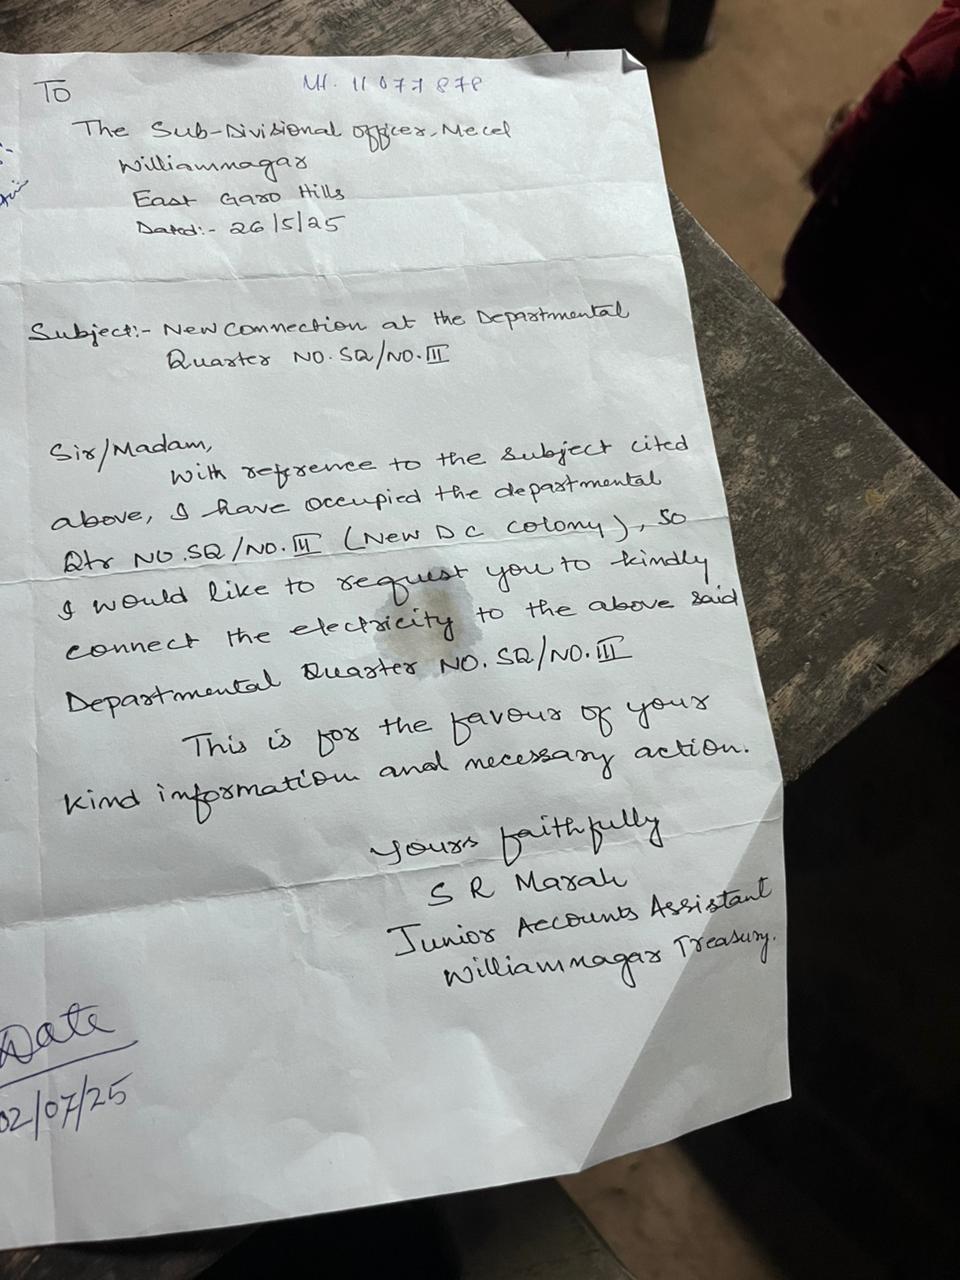 To
M. 11077878
The Sub-Divisional Officer, Mecel
Williamnagar
East Garo Hills
Dated:- 26/5/25
Subject:- New Connection at the Departmental
Quarter NO. SQ/NO. III
Sir/Madam,
With reference to the subject cited
above, I have occupied the departmental
Qtr NO. SQ/NO. III (New D C Colony), so
I would like to request you to kindly
connect the electricity to the above said
Departmental Quarter NO. SQ/NO. III
This is for the favour of your
kind information and necessary action.
Yours faithfully
S R Marak
Junior Accounts Assistant
Williamnagar Treasury.
Date
02/07/25